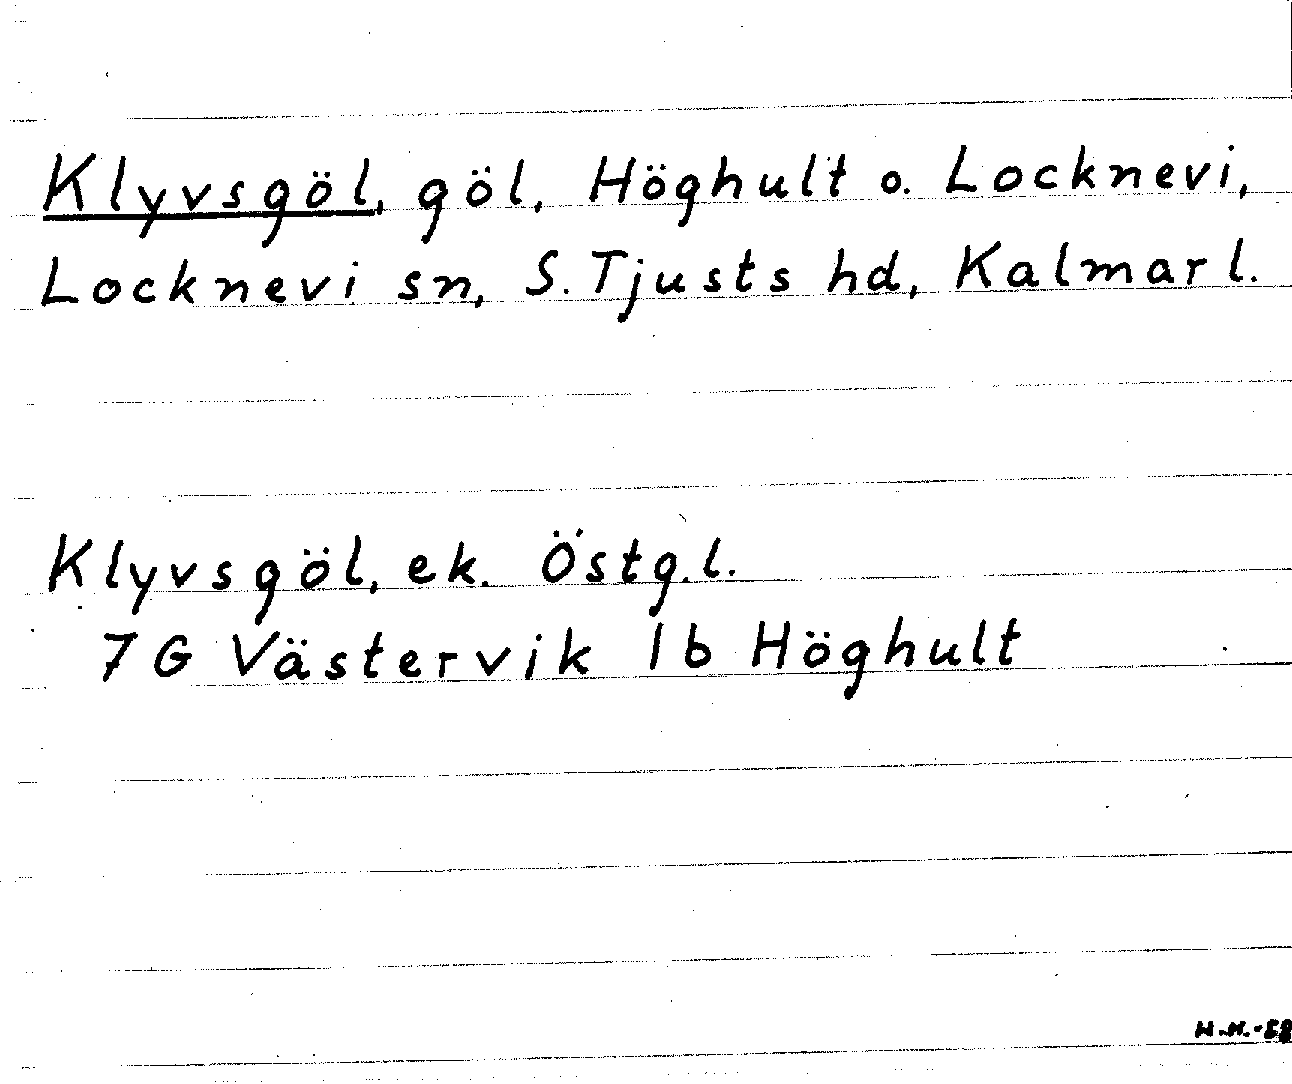 Klyvsgöl, göl, Höghult o. Locknevi,
Locknevi sn, S. Tjusts hd, Kalmar l.
Klyvsgöl, ek. Östg. l.
7 G Västervik 1 b Höghult